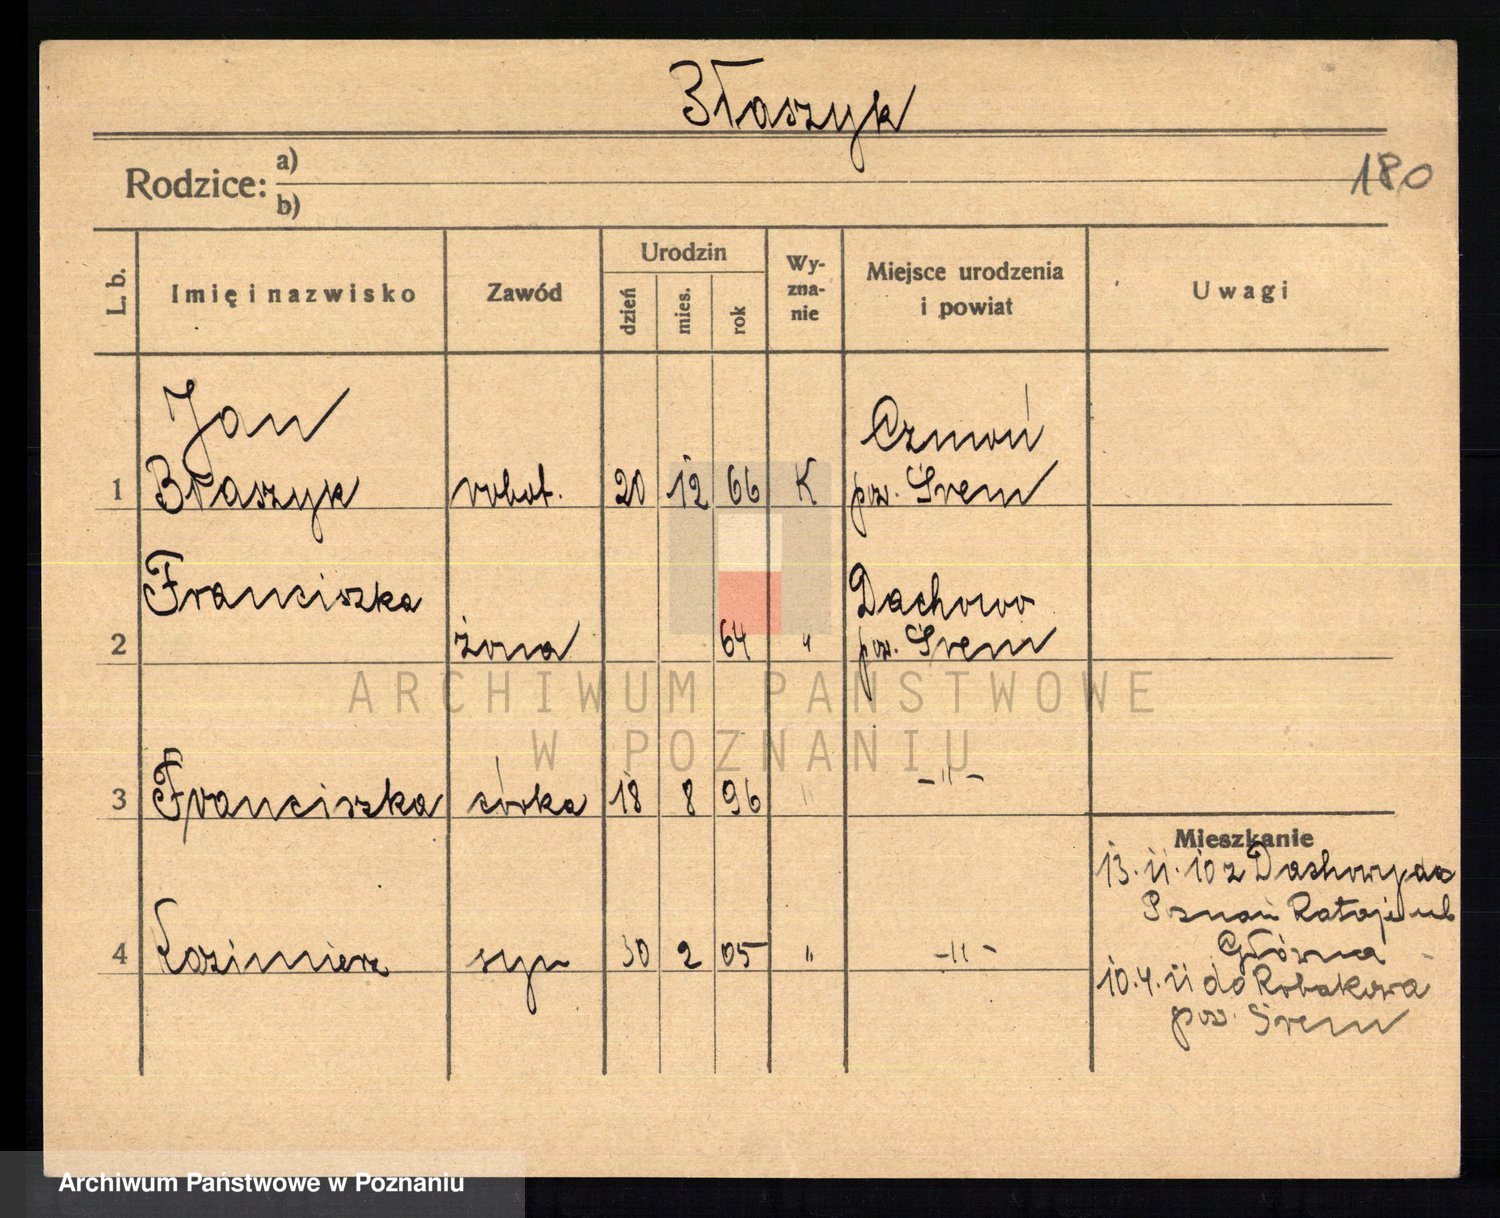 Błaszyk
180
Rodzice: a)
b)
L. b. Imię i nazwisko Zawód Urodzin dzień mies. rok Wy-zna-nie Miejsce urodzenia i powiat Uwagi
Jan Czmoń
1 Błaszyk robot. 20 12 66 K pow. Śrem
Franciszka Dachowo
2 żona 64 " pow. Śrem
3 Franciszka córka 18 8 96 " -"-
Mieszkanie
13.11.10 z Dachowy do
Poznań Rataje ul
4 Kazimierz syn 30 2 05 " -"-
Główna
10.4.11 do Robakowa
pow. Śrem
ARCHIWUM PAŃSTWOWE
W POZNANIU
Archiwum Państwowe w Poznaniu